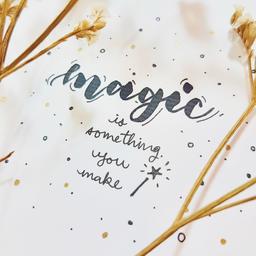 magic
is
something
you
make